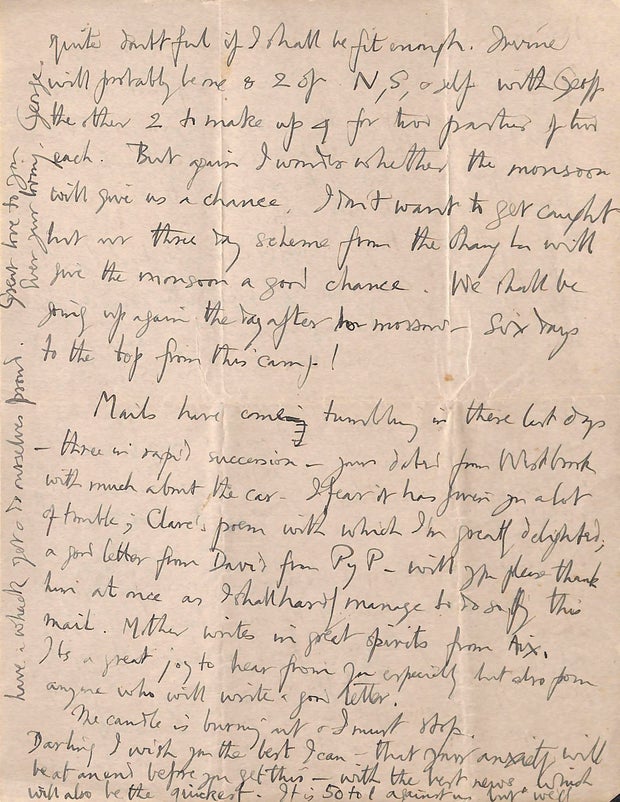 quite doubtful if I shall be fit enough. Irvine
will probably be one & 2 of N, S, & self with Geoff
the other 2 to make up 4 for two parties of two
each. But again I wonder whether the monsoon
will give us a chance. I don't want to get caught
but our three day scheme from the Chang La will
give the monsoon a good chance. We shall be
going up again the day after tomorrow Six days
to the top from this camp!
Mails have come tumbling in these last days
- three in rapid succession - yours dated from Westbrook
with much about the car - I fear it has given you a lot
of trouble; Clare's poem with which I'm greatly delighted;
a good letter from David from PyP - will you please thank
him at once as I shall hardly manage to do so by this
mail. Mother writes in great spirits from Aix.
Its a great joy to hear from you especially but also from
anyone who will write a good letter.
The candle is burning out & I must stop.
Darling I wish you the best I can - that your anxiety will
be at an end before you get this - with the best news. which
will also be the quickest. It is 50 to 1 against us but we'll
have a whack yet & do ourselves proud. Great love to you
Ever your loving, George.